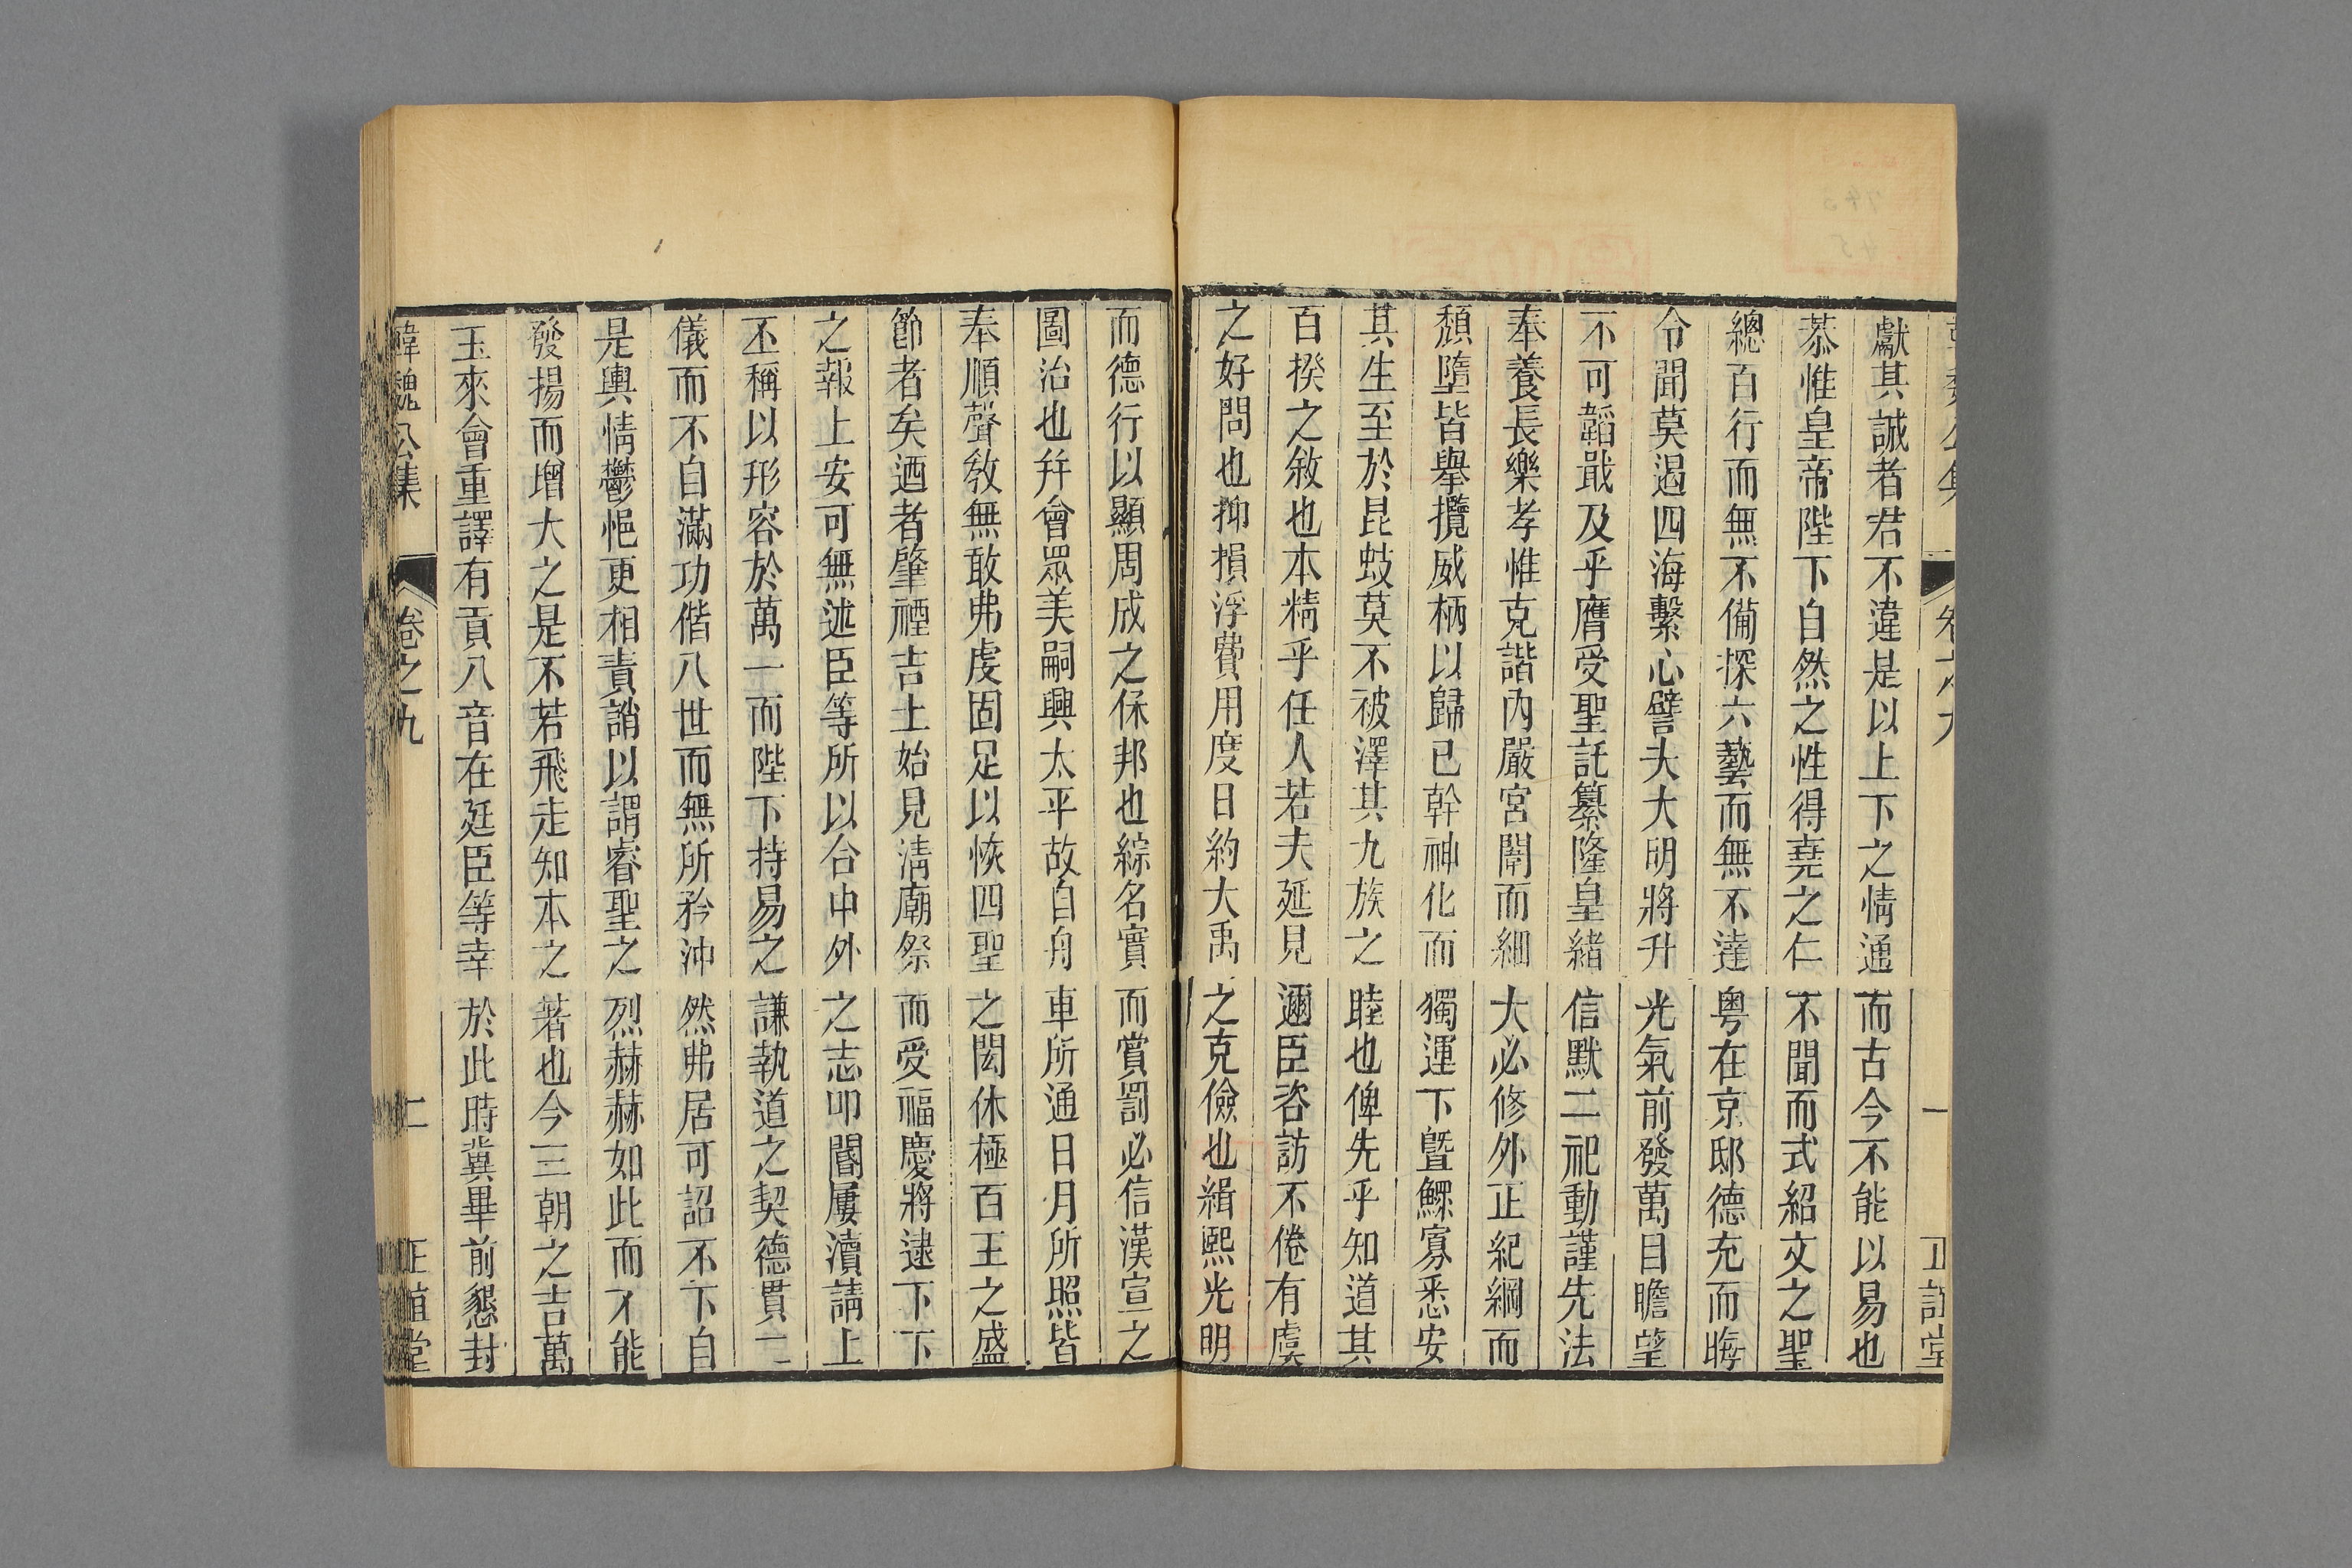 獻其誠者君不違是以上下之情通而古今不能以易也
恭惟皇帝陛下自然之性得堯之仁不聞而式紹文之聖
總百行而無不備探六藝而無不達粤在京邸德充而晦
令聞莫遏四海繫心譬夫大明將升光氣前發萬目瞻望
不可韜戢及乎膺受聖託纂隆皇緒信默二祀動謹先法
奉養長樂孝惟克諧內嚴宮閫而細大必修外正紀綱而
頹墮皆舉攬威柄以歸已幹神化而獨運下曁鰥寡悉安
其生至於昆蚑莫不被澤其九族之睦也俾先乎知道其
百揆之敘也本精乎任人若夫延見邇臣咨訪不倦有虞
之好問也抑損浮費用度日約大禹之克儉也緝熙光明
而德行以顯周成之保邦也綜名實而賞罰必信漢宣之
圖治也幷會眾美嗣興太平故自舟車所通日月所照皆
奉順聲敎無敢弗虔固足以恢四聖之閎休極百王之盛
節者矣迺者肇禋吉土始見淸廟祭而受福慶將逮下下
之報上安可無述臣等所以合中外之志叩閽屢瀆請上
丕稱以形容於萬一而陛下持易之謙執道之契德貫二
儀而不自滿功偕八世而無所矜沖然弗居可詔不下自
是輿情鬱悒更相責誚以謂睿聖之烈赫赫如此而不能
發揚而增大之是不若飛走知本之著也今三朝之吉萬
玉來會重譯有貢八音在廷臣等幸於此時冀畢前懇封
韓魏公集 卷之九 二 正誼堂